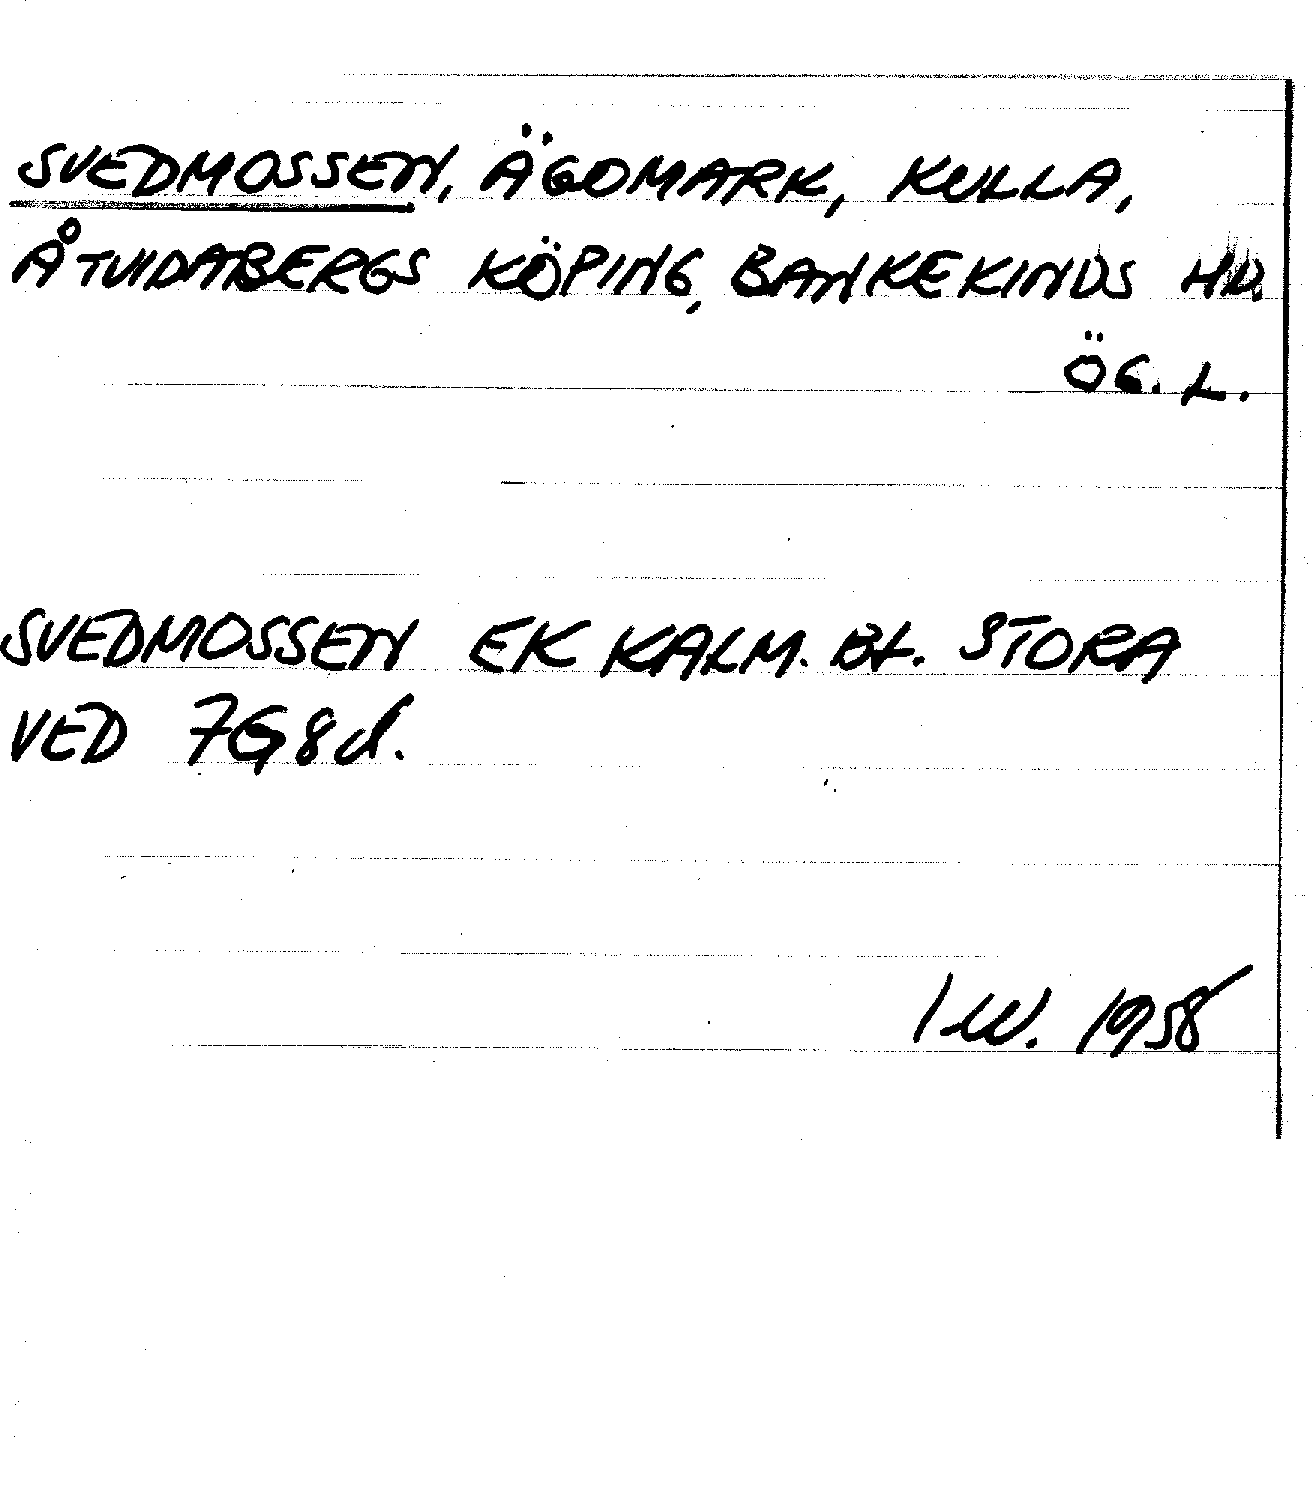 SVEDMOSSEN, ÄGOMARK, KULLA,
ÅTVIDABERGS KÖPING, BANKEKINDS HD.
ÖG. L.
SVEDMOSSEN EK KALM. BL. STORA
VED 7G8d.
I.W. 1958